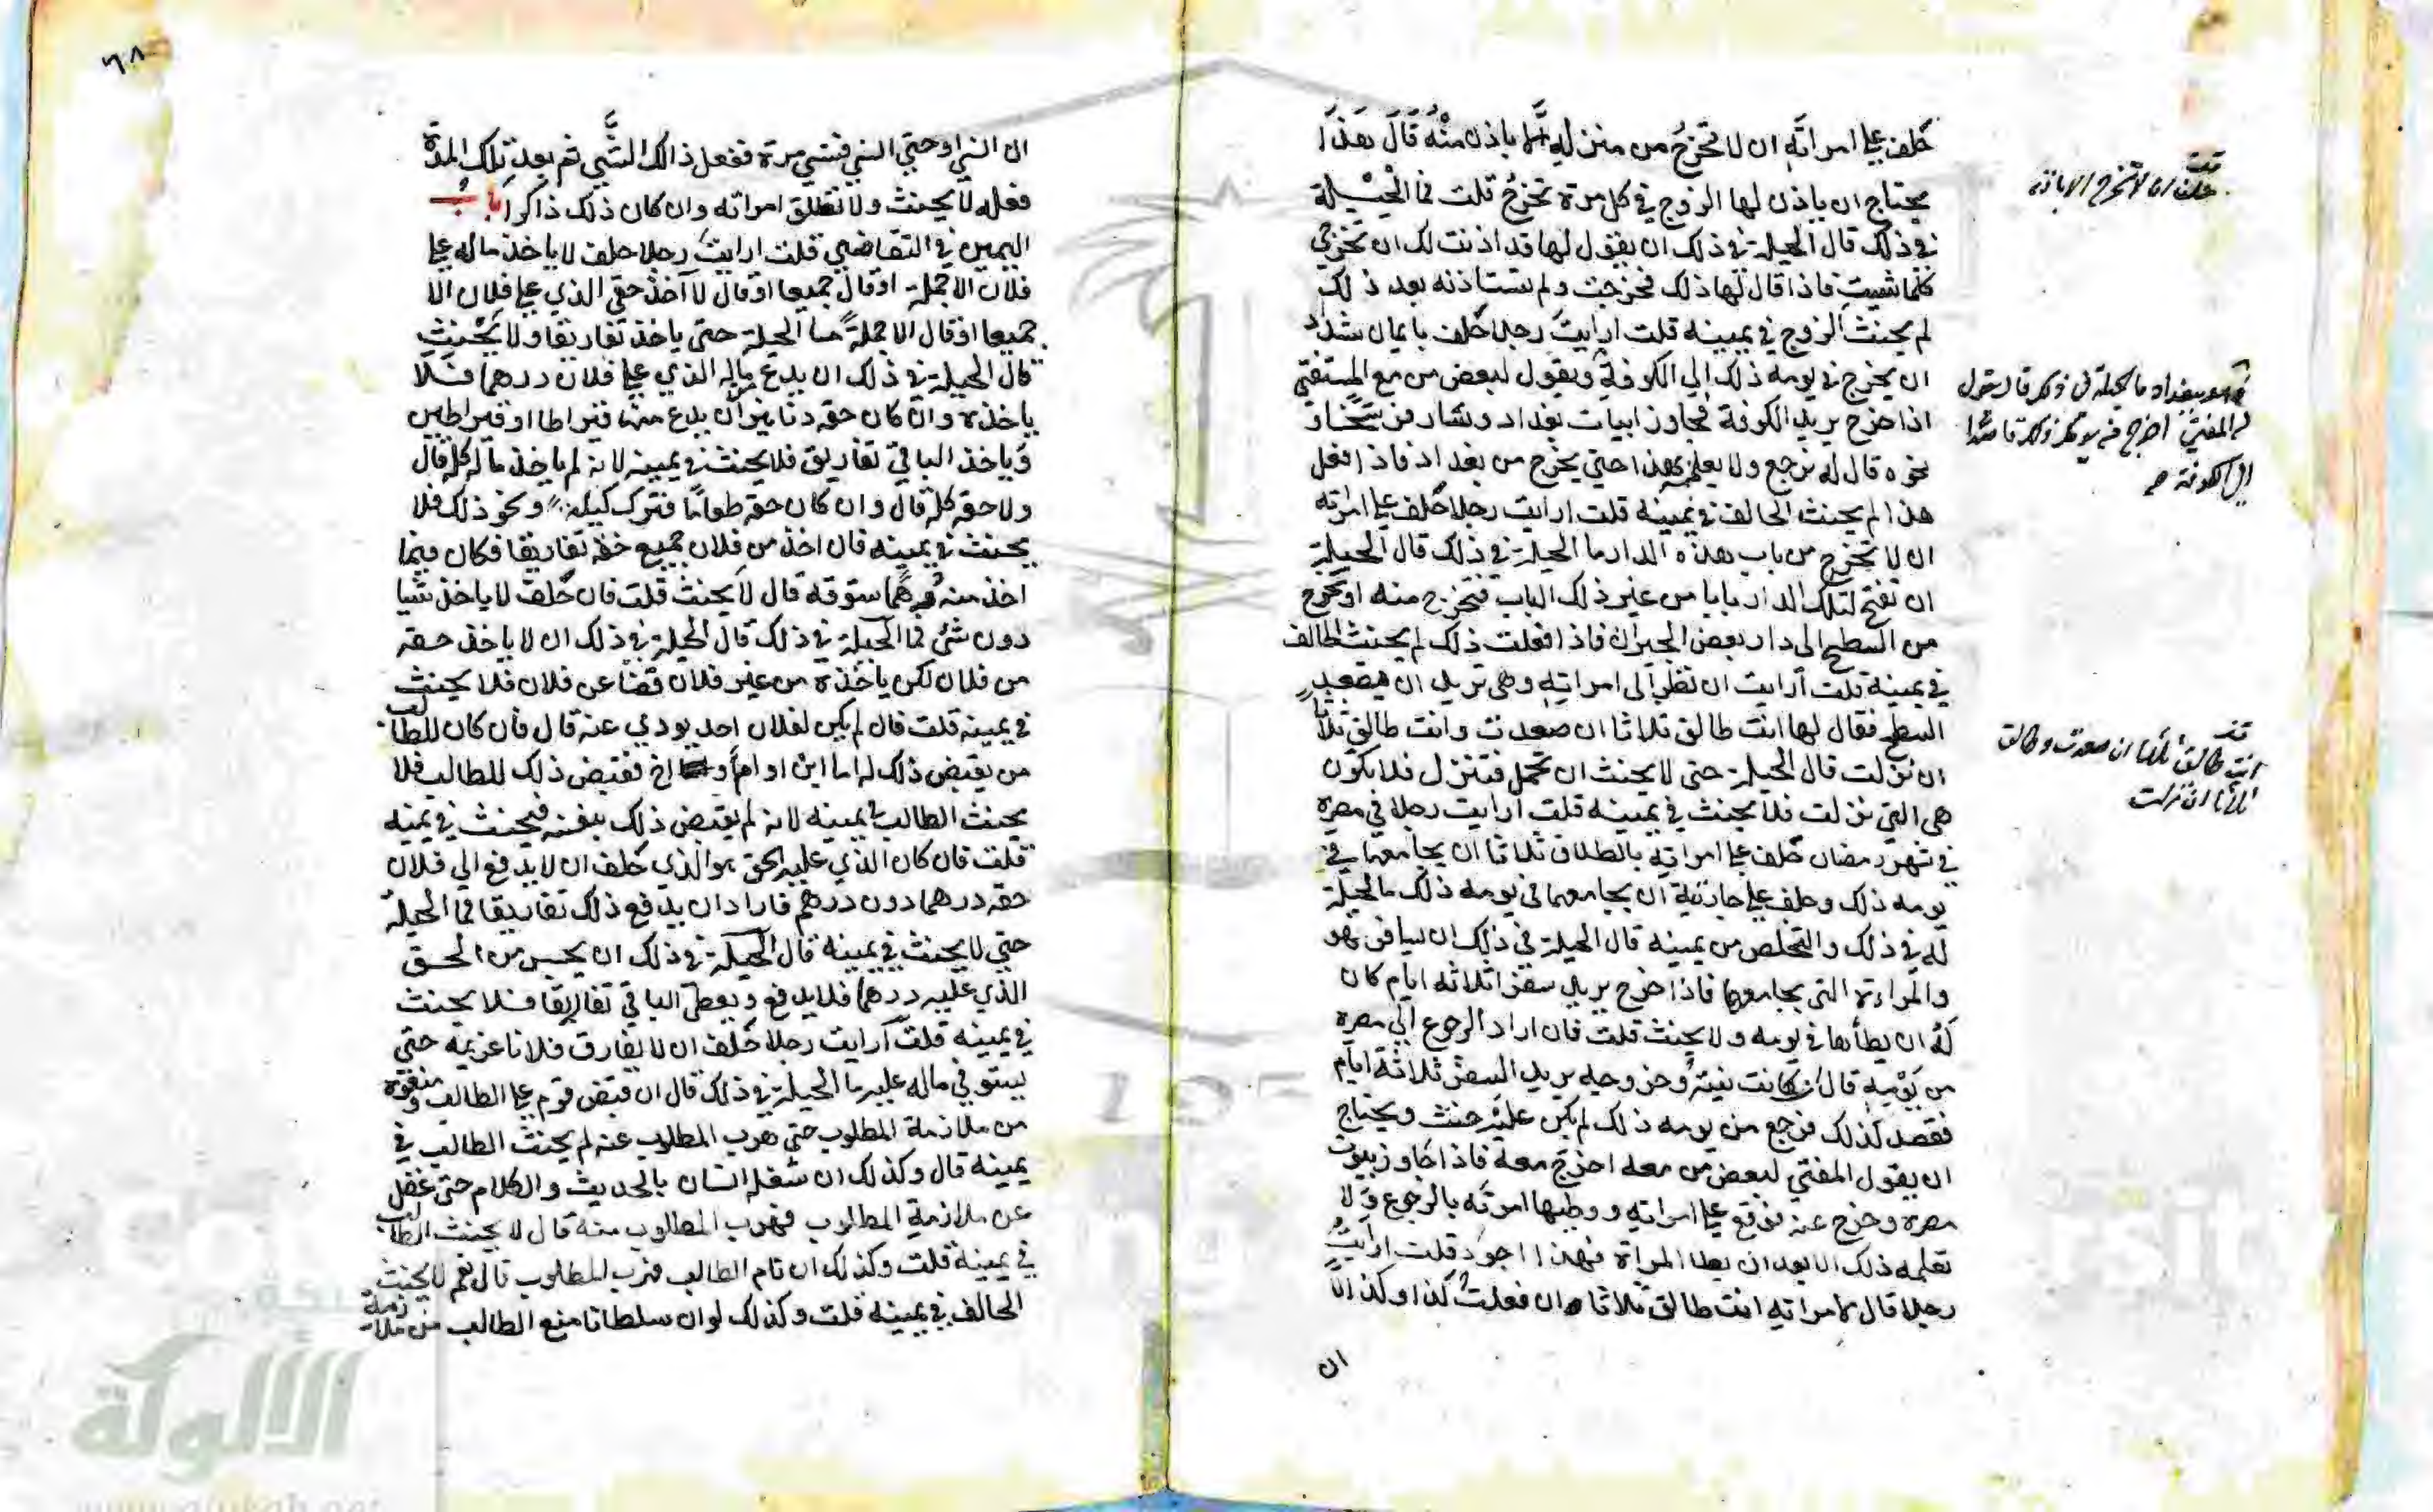 حلف على امراته ان لا تخرج من منزله الا باذن منه قال هذا
يحتاج ان ياذن لها الزوج في كل مرة تخرج قلت فما الحيلة
في ذلك قال الحيلة في ذلك ان يقول لها قد اذنت لك ان تخرجي
كلما شيت فاذا قال لها ذلك فخرجت ولم تستاذنه بعد ذلك
لم يحنث الزوج في يمينه قلت ارايت رجلا حلف بايمان شداد
ان يخرج في يومه ذلك الي الكوفة ويقول لبعض من مع المستفتي
اذا خرج يريد الكوفة فجاوز ابيات بغداد وسار فرسخا و
نحوه قال له نرجع ولا يعلمه بهذا حتي يخرج من بغداد فاذا فعل
هذا لم يحنث الحالف في يمينه قلت ارايت رجلا حلف على امراته
ان لا تخرج من باب هذه الدار ما الحيلة في ذلك قال الحيلة
ان تفتح لتلك الدار بابا من غير ذلك الباب فتخرج منه او تخرج
من السطح الى دار بعض الجيران فاذا فعلت ذلك لم يحنث الحالف
في يمينه قلت ارايت ان نظر الى امراته وهي تريد ان تصعد
السطح فقال لها انت طالق ثلاثا ان صعدت وانت طالق ثلاثا
ان نزلت قال الحيلة حتى لا يحنث ان تحمل فتنزل فلا يكون
هي التي نزلت فلا يحنث في يمينه قلت ارايت رجلا في مصره
في شهر رمضان حلف على امراته بالطلاق ثلاثا ان يجامعها في
يومه ذلك وحلف على جاريته ان يجامعها في يومه ذلك ما الحيلة
له في ذلك والتخلص من يمينه قال الحيلة في ذلك ان يسافر هو
والمراءة التي يجامعها فاذا خرج يريد سفرا ثلاثه ايام كان
له ان يطأها في يومه ولا يحنث قلت فان اراد الرجوع الي مصره
من يومه قال ان كانت نيته وخروجه يريد السفر ثلاثة ايام
فقصد لذلك فرجع من يومه ذلك لم يكن عليه حنث ويحتاج
ان يقول المفتي لبعض من معه اخرج معه فاذا جاوز بيوت
مصره وخرج عنه فوقع على امراته ووطيها امرته بالرجوع ولا
تعلمه ذلك الا بعد ان يطا المراة فهذا اجود قلت ارايت
رجلا قال لامراته انت طالق ثلاثا ان فعلت كذا وكذا الا
ان
حلف ان لا تخرج الا باذنه
وهو ببغداد ما الحيلة في ذلك قال يقول
له المفتي اخرج في يومك ذلك قاصدا
الى الكوفة صح
انت طالق ثلاثا ان صعدت وطالق
ثلاثا ان نزلت
٦٨
ان انسي او حتي انسي فنسي مرة ففعل ذالك الشي ثم بعد تلك المدة
فعله لا يحنث ولا تطلق امراته وان كان ذلك ذاكرا باب
اليمين في التقاضي قلت ارايت رجلا حلف لا ياخذ ماله على
فلان الا جملة او قال جميعا او قال لا آخذ حقي الذي على فلان الا
جميعا او قال الا جملة ما الحيلة حتى ياخذ تفاريقا ولا يحنث
قال الحيلة في ذلك ان يدع من ماله الذي على فلان درهما فلا
ياخذه وان كان حقه دنانير ان يدع منها قيراطا او قيراطين
وياخذ الباقي تفاريق فلا يحنث في يمينه لانه لم ياخذ ماله كله قال
ولا حقه كله قال وان كان حقه طعاما فترك كيله ونحو ذلك فلا
يحنث في يمينه فان اخذ من فلان جميع حقه تفاريقا فكان فيما
اخذ منه درهما ستوقه قال لا يحنث قلت فان حلف لا ياخذ شيا
دون شئ فما الحيلة في ذلك قال الحيلة في ذلك ان لا ياخذ حقه
من فلان لكن ياخذه من غير فلان قضا عن فلان فلا يحنث
في يمينه قلت فان لم يكن لفلان احد يودي عنه قال فان كان للطالب
من يقبض ذلك له اما ابن او ام او اخ فقبض ذلك للطالب فلا
يحنث الطالب في يمينه لانه لم يقبض ذلك بنفسه فيحنث في يمينه
قلت فان كان الذي عليه الحق هو الذي حلف ان لا يدفع الي فلان
حقه درهما دون درهم فاراد ان يدفع ذلك تفاريقا فما الحيلة
حتي لا يحنث في يمينه قال الحيلة في ذلك ان يحبس من الحق
الذي عليه درهما فلا يدفع ويعطي الباقي تفاريقا فلا يحنث
في يمينه قلت ارايت رجلا حلف ان لا يفارق فلانا غريمه حتى
يستوفي ماله عليه ما الحيلة في ذلك قال ان قبض قوم على الطالب ومنعوه
من ملازمة المطلوب حتى هرب المطلوب عنه لم يحنث الطالب في
يمينه قال وكذلك ان شغله انسان بالحديث والكلام حتى غفل
عن ملازمة المطلوب فهرب المطلوب منه قال لا يحنث الطالب
في يمينه قلت وكذلك ان نام الطالب فهرب المطلوب قال نعم لا يحنث
الحالف في يمينه قلت وكذلك لو ان سلطانا منع الطالب من ملازمة
الألوكة